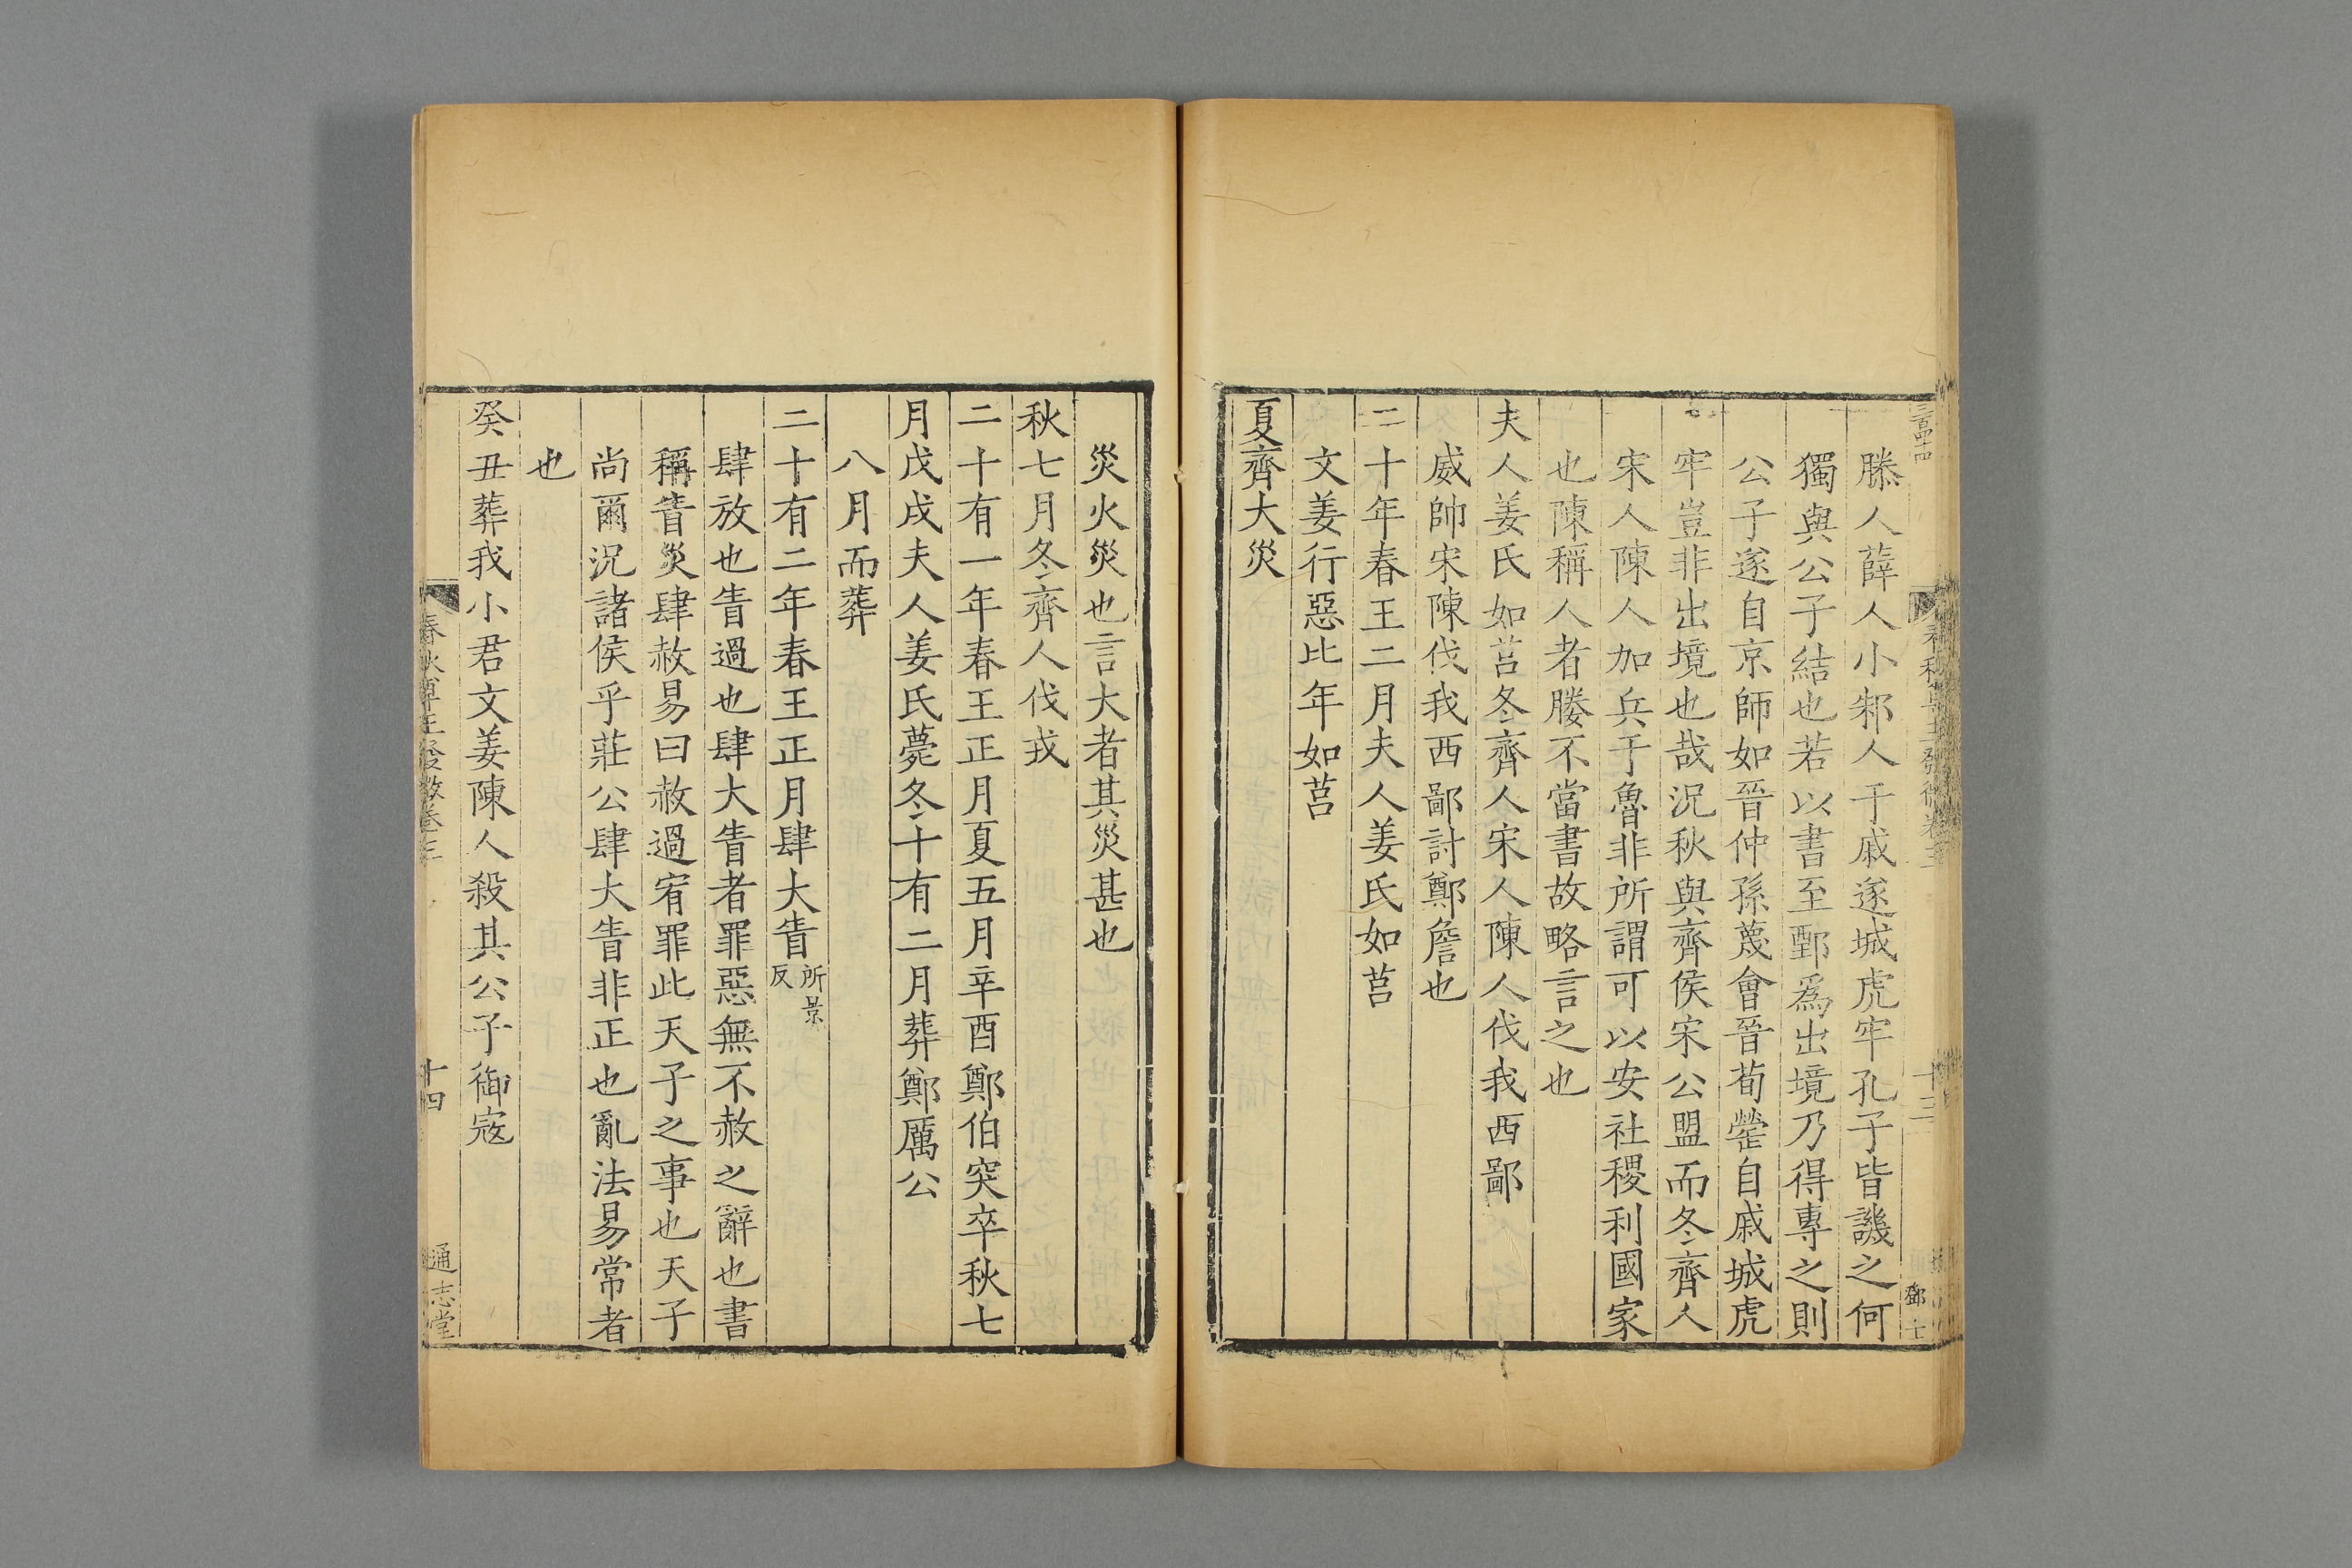 滕人薛人小邾人于戚遂城虎牢孔子皆譏之何
獨與公子結也若以書至鄄爲出境乃得專之則
公子遂自京師如晉仲孫蔑會晉荀罃自戚城虎
牢豈非出境也哉況秋與齊侯宋公盟而冬齊人
宋人陳人加兵于魯非所謂可以安社稷利國家
也陳稱人者媵不當書故略言之也
夫人姜氏如莒冬齊人宋人陳人伐我西鄙
威帥宋陳伐我西鄙討鄭詹也
二十年春王二月夫人姜氏如莒
文姜行惡比年如莒
夏齊大災
災火災也言大者其災甚也
秋七月冬齊人伐戎
二十有一年春王正月夏五月辛酉鄭伯突卒秋七
月戊戌夫人姜氏薨冬十有二月葬鄭厲公
八月而葬
二十有二年春王正月肆大眚所景反
肆放也眚過也肆大眚者罪惡無不赦之辭也書
稱眚災肆赦易曰赦過宥罪此天子之事也天子
尚爾況諸侯乎莊公肆大眚非正也亂法易常者
也
癸丑葬我小君文姜陳人殺其公子御寇
春秋尊王發微卷三
十四
通志堂